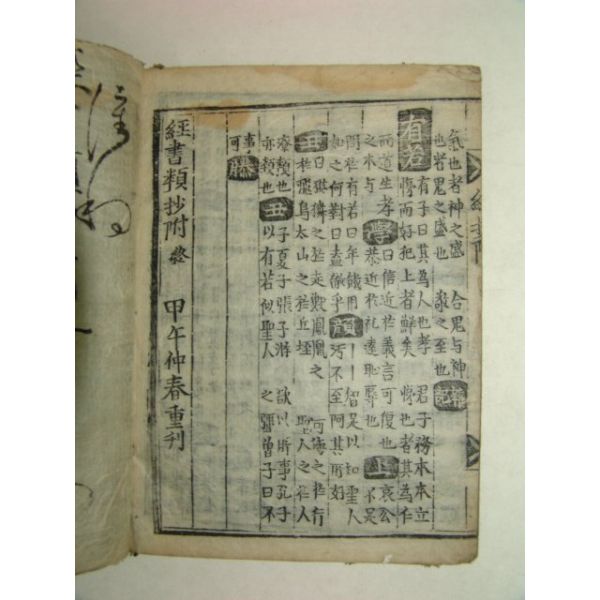 氣也者神之盛 合鬼与神
也者鬼之盛也 敎之至也
有若
有子曰其為人也孝 君子務本本立
悌而好犯上者鮮矣 悌也者其為仁
而道生孝 曰信近於義言可復也 哀公
之本与 學 恭近於礼遠恥辱也 上 不足
問於有若曰年饑用 智足以知聖人
如之何對曰盍徹乎 汚不至阿其所好
丑 曰麒麟之於走獸鳳凰之 海之於行
於飛鳥太山之於丘垤 聖人之於人
類也 子夏子張子游 欲以所事孔子
亦類也 丑 以有若似聖人 之彊曾子曰不
可 滕
經書類抄附終 甲午仲春重刊